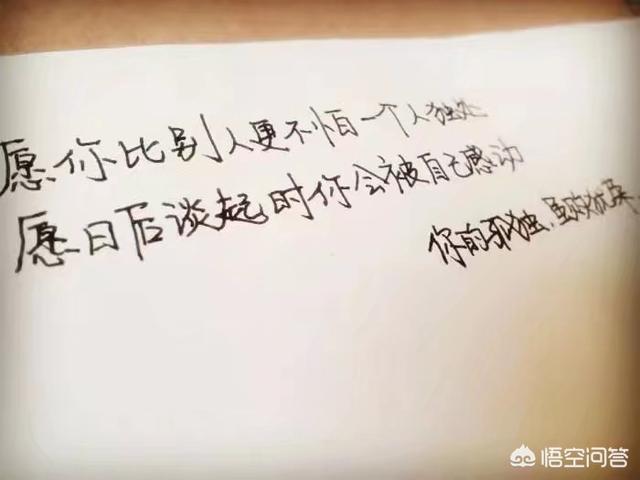 愿你比别人更不怕一个人独处
愿日后谈起时你会被自己感动
你的孤独,虽败犹荣.
悟空问答